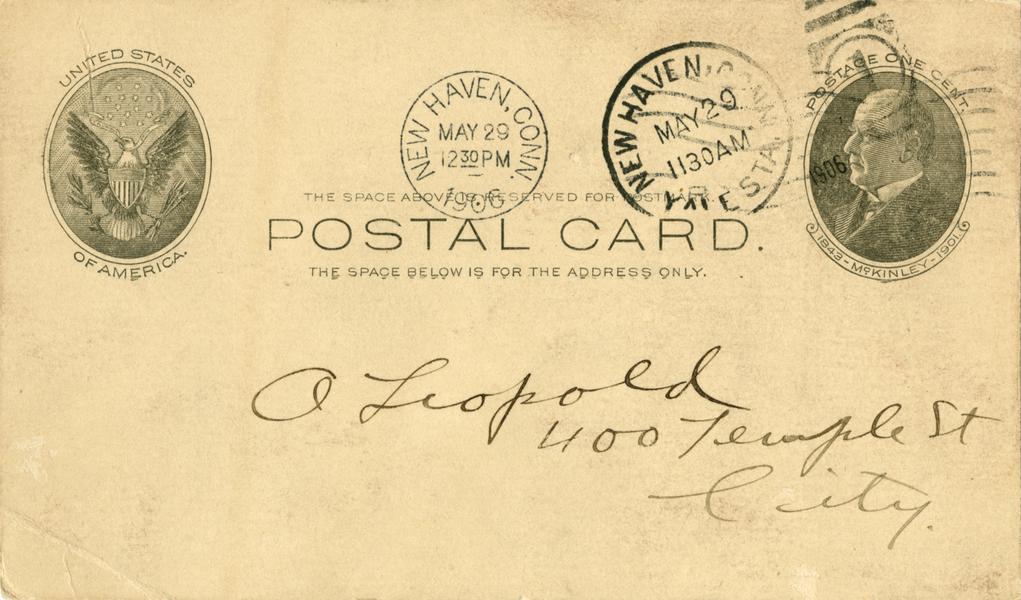 UNITED STATES
OF AMERICA.
NEW HAVEN, CONN.
MAY 29
12 30 PM
1906
NEW HAVEN, CONN.
MAY 29
11 30 AM
STA.
1906
POSTAGE ONE CENT.
1843-McKINLEY-1901.
THE SPACE ABOVE IS RESERVED FOR POSTMARK.
POSTAL CARD.
THE SPACE BELOW IS FOR THE ADDRESS ONLY.
A Leopold
400 Temple St
City.